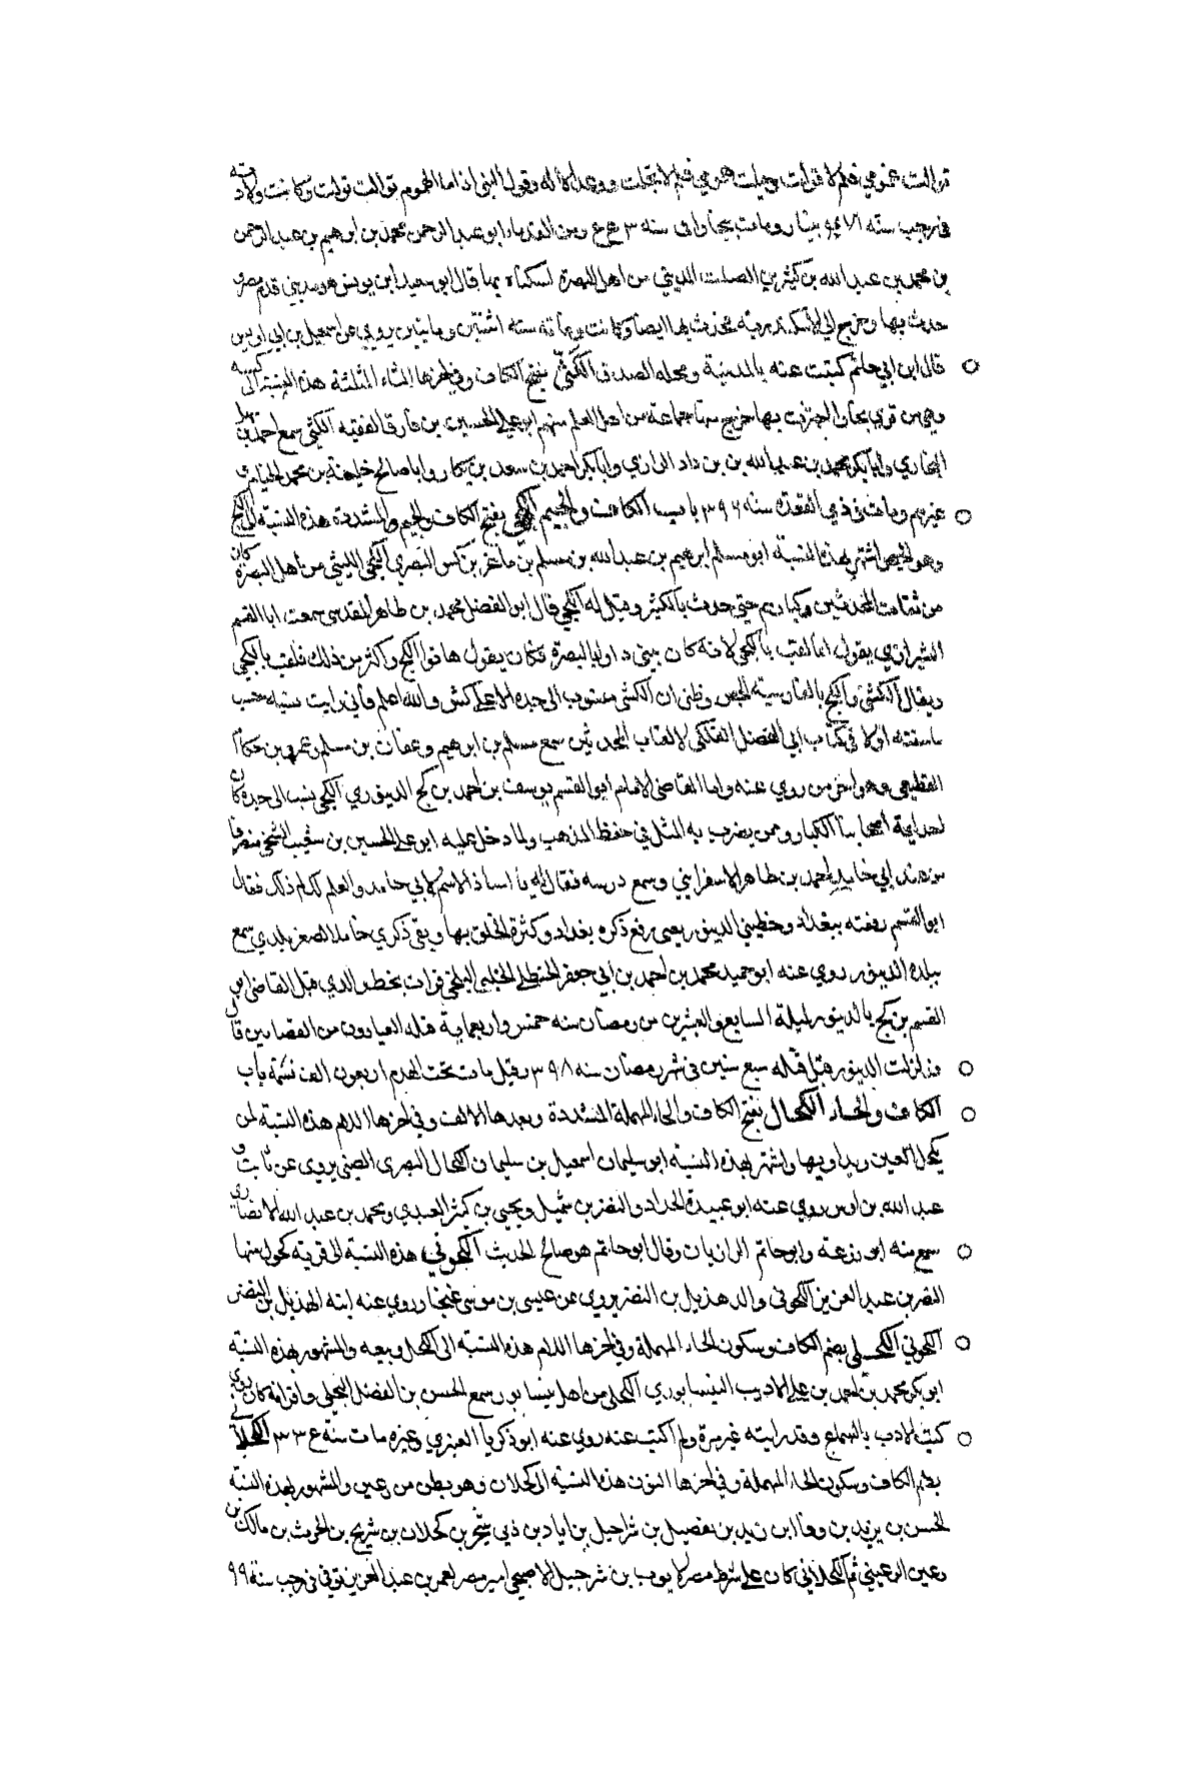 توالت غمومي فلم لا تولت وجلت همومي فلم لا تجلت ووعد الاله وقول النبي اذا ما الهموم توالت تولت وكانت ولادته
في رجب سنة ومات ببخارا في سنة ومن القدماء ابو عبد الرحمن محمد بن ابرهيم بن عبد الرحمن
بن محمد بن عبد الله بن كثير بن الصلت المديني من اهل البصرة لسكناه بها قال ابو سعيد ابن يونس هو مديني قدم مصر
حدث بها وخرج الي الاسكندرية فحدث بها ايضا وكانت وفاته سنة اثنتين ومايتين يروي عن اسمعيل بن ابي اويس
قال ابن ابي حاتم كتبت عنه بالمدينة ومحله الصدق الكثي بفتح الكاف وفي اخرها الثاء المثلثة هذه النسبة الى
وهي من قري بخارا خرج منها جماعة من اهل العلم منهم ابو علي الحسين بن الفقيه الكثي سمع احمد بن سهل
البخاري وابا بكر محمد بن عبد الله بن الرازي وابا بكر احمد بن سعد بن بكار وابا صالح خلف بن محمد الخيام و
غيرهم ومات في ذي القعدة سنة ٣٩٦ باب الكاف والجيم الكجي بفتح الكاف والجيم المشددة هذه النسبة الى الكج
وهو الجص اشتهر بهذه النسبة ابو مسلم ابرهيم بن عبد الله بن مسلم بن ماعز بن كش البصري الكجي الليثي من اهل البصرة كان
من ثقات المحدثين وكبارهم حتي حدث بالكثير وقيل له الكجي قال ابو الفضل محمد بن طاهر المقدسي سمعت ابا القسم
الشيرازي يقول انما لقب بالكجي لانه كان يبني دارا بالبصرة فكان يقول هاتوا الكج واكثر من ذلك فلقب بالكجي
ويقال الكشي والكج بالفارسية الجص وظني ان الكشي منسوب الى جده الاعلي كش والله اعلم وقد رايت نسبه حسب
ما سقته اولا في كتاب ابي الفضل الفلكي لالقاب المحدثين سمع مسلم بن ابرهيم وعفان بن مسلم
القطيعي وهو اخر من روي عنه واما القاضي الامام ابو القسم يوسف بن احمد بن كج الدينوري الكجي ينسب الى جده كان
احد ايمة اصحابنا الكبار وممن يضرب به المثل في حفظ المذهب ولما دخل عليه ابو علي الحسين بن شعيب السنجي منصرفا
من عند ابي حامد احمد بن طاهر الاسفرايني وسمع درسه فقال له يا استاذ الاسم لابي حامد والعلم لك ام ذلك فقال
ابو القسم رفعته ببغداد وحطتني الدينور يعني رفع ذكره بغداد وكثرة الخلق بها وبقي ذكري خاملا لصغر بلدي سمع
ببلده الدينور روي عنه ابو حميد محمد بن احمد بن ابي جعفر الحنظلي البلخي قرات بخط والدي قتل القاضي ابو
القسم بن كج بالدينور ليلة السابع والعشرين من رمضان سنة خمس واربعماية قتله العيارون من القصابين قال
وزلزلت الدينور قبل قتله سبع سنين في شهر رمضان سنة ٣٩٨ وقيل مات تحت الهدم اربعون الف نسمة باب
الكاف والحاء الكحال بفتح الكاف والحاء المهملة المشددة وبعدها الالف وفي اخرها اللام هذه النسبة لمن
يكحل العين ويداويها واشتهر بهذه النسبة ابو سليمان اسمعيل بن سليمان الكحال البصري الضبي يروي عن ثابت و
عبد الله بن اوس روي عنه ابو عبيدة الحداد والنضر بن شميل ويحيى بن كثير العبدي ومحمد بن عبد الله الانصاري
سمع منه ابو زرعة وابو حاتم الرازيان وقال ابو حاتم هو صالح الحديث الكحوني هذه النسبة الى قرية كحون منها
النضر بن عبد العزيز الكحوني والد هذيل بن النضر يروي عن عيسى بن موسى غنجار روي عنه ابنه الهذيل بن النضر
الكحوني الكحلي بضم الكاف وسكون الحاء المهملة وفي اخرها اللام هذه النسبة الى الكحل وبيعه والمشهور بهذه النسبة
ابو بكر محمد بن احمد بن علي الاديب النيسابوري الكحلي من اهل نيسابور سمع الحسن بن الفضل البجلي واقرانه كان يروي
كتب الادب بالسماع وقد رايته غير مرة ولم اكتب عنه روي عنه ابو ذكريا العنبري وغيره مات سنة ٣٣٤ الكحلاني
بضم الكاف وسكون الحاء المهملة وفي اخرها النون هذه النسبة الى كحلان وهو بطن من رعين والمشهور بهذه النسبة
الحسن بن يزيد بن وفا ابن زيد بن نفصيل بن شراحيل بن اياد بن ذي شحر بن كحلان بن شريح بن الحرث بن مالك بن
رعين الرعيني ثم الكحلاني كان علي شرط مصر لايوب بن شرحبيل الاصبحي امير مصر لعمر بن عبد العزيز توفي في رجب سنة ٩٩